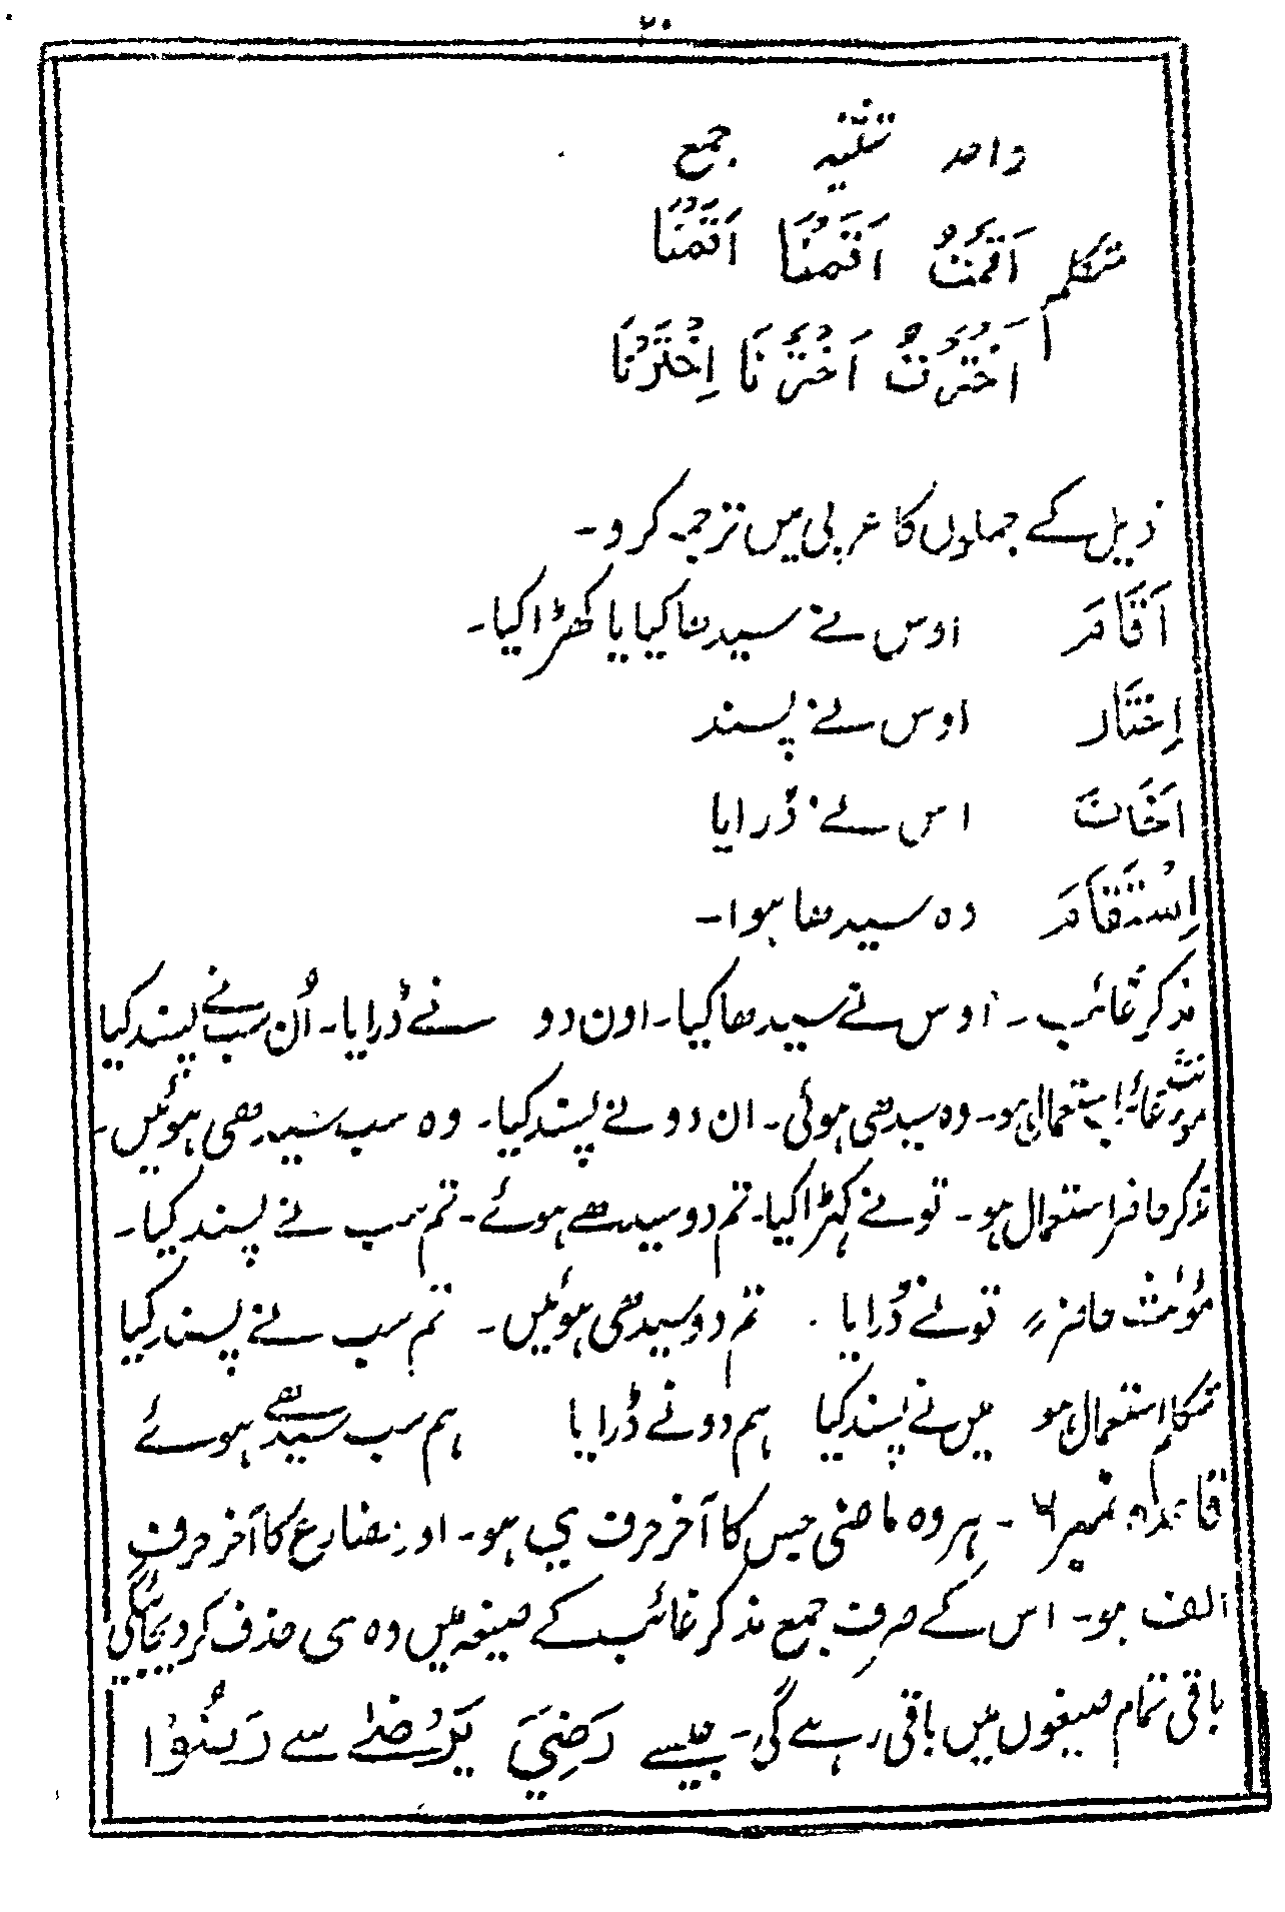 ۲۰
واحد تثنیہ جمع
متکلم اَقَمْتُ اَقَمْنَا اَقَمْنَا
اَخْتَرْتُ اَخْتَرْنَا اِخْتَرْنَا
ذیل کے جملوں کا عربی میں ترجمہ کرو۔
اَقَامَ اوس نے سیدھا کیا یا کھڑا کیا۔
اِخْتَارَ اوس نے پسند
اَخَافَ اس نے ڈرایا
اِسْتَقَامَ وہ سیدھا ہوا۔
مذکر غائب۔ اوس نے سیدھا کیا۔ اون دو نے ڈرایا۔ اُن سب نے پسند کیا
مونث غائب استعمال ہو۔ وہ سیدھی ہوئی۔ ان دو نے پسند کیا۔ وہ سب سیدھی ہوئیں۔
مذکر حاضر استعمال ہو۔ تو نے کہڑا کیا۔ تم دو سیدھے ہوئے۔ تم سب نے پسند کیا۔
مؤنث حاضر ؍؍ تو نے ڈرایا . تم دو سیدھی ہوئیں۔ تم سب نے پسند کیا
متکلم استعمال ہو میں نے پسند کیا ہم دو نے ڈرایا ہم سب سیدھے ہوئے
قاعدہ نمبر ۶ ۔ ہر وہ ماضی جس کا آخر حرف ی ہو۔ اور مضارع کا آخر حرف
الف ہو۔ اس کے صرف جمع مذکر غائب کے صیغہ میں وہ ی حذف کر دیجائیگی
باقی تمام صیغوں میں باقی رہے گی۔ جیسے رَضِيَ يَرْضٰے سے رَضُوْا